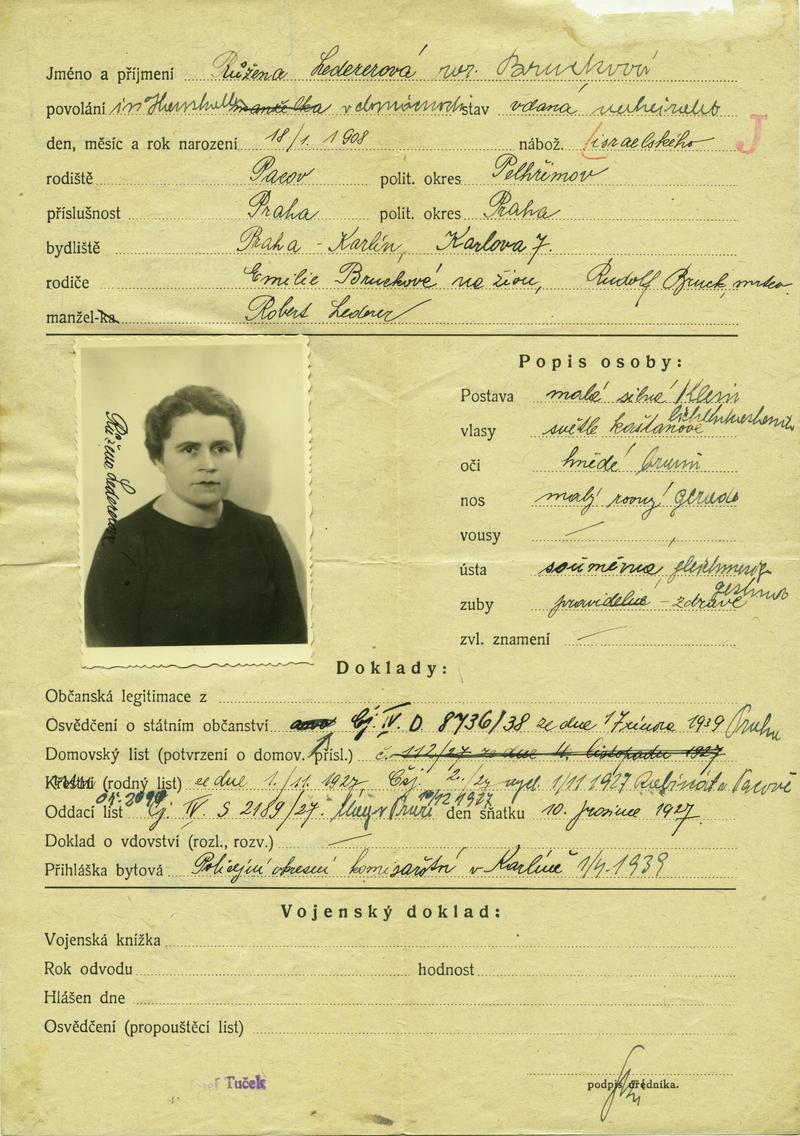 Jméno a příjmení Růžena Ledererová roz. Brucková
povolání manželka v domácnosti stav vdaná verheiratet
den, měsíc a rok narození 18/1. 1908 nábož. israelského J
rodiště Pacov polit. okres Pelhřimov
příslušnost Praha polit. okres Praha
bydliště Praha - Karlín, Karlova 7.
rodiče Emilie Bruckové na živu, Rudolf Bruck, mrtev
manžel-ka Robert Lederer
Růžena Ledererová
Popis osoby:
Postava malá silná Klein
vlasy světle kaštanové
oči hnědé braun
nos malý rovný gerade
vousy —
ústa souměrná, gleichmäßig
zuby pravidelné - zdravé gesund
zvl. znamení —
Doklady:
Občanská legitimace z
Osvědčení o státním občanství Čj. IV. D 8736/38 ze dne 17 února 1939 Praha
Domovský list (potvrzení o domov. přísl.) č. 112/27 ze dne 4. listopadu 1927
Křestní (rodný list) ze dne 1./11. 1927 Čsj. 2./27 vyd. 1/11 1927 Rabinát v Pacově
Oddací list Čj. IV. S 2189/27. 10/12 1927 den sňatku 10. prosince 1927
Doklad o vdovství (rozl., rozv.) —
Přihláška bytová Policejní okresní komisařství v Karlíně 1/4. 1939
Vojenský doklad:
Vojenská knížka
Rok odvodu hodnost
Hlášen dne
Osvědčení (propouštěcí list)
Tuček
podpis úředníka.